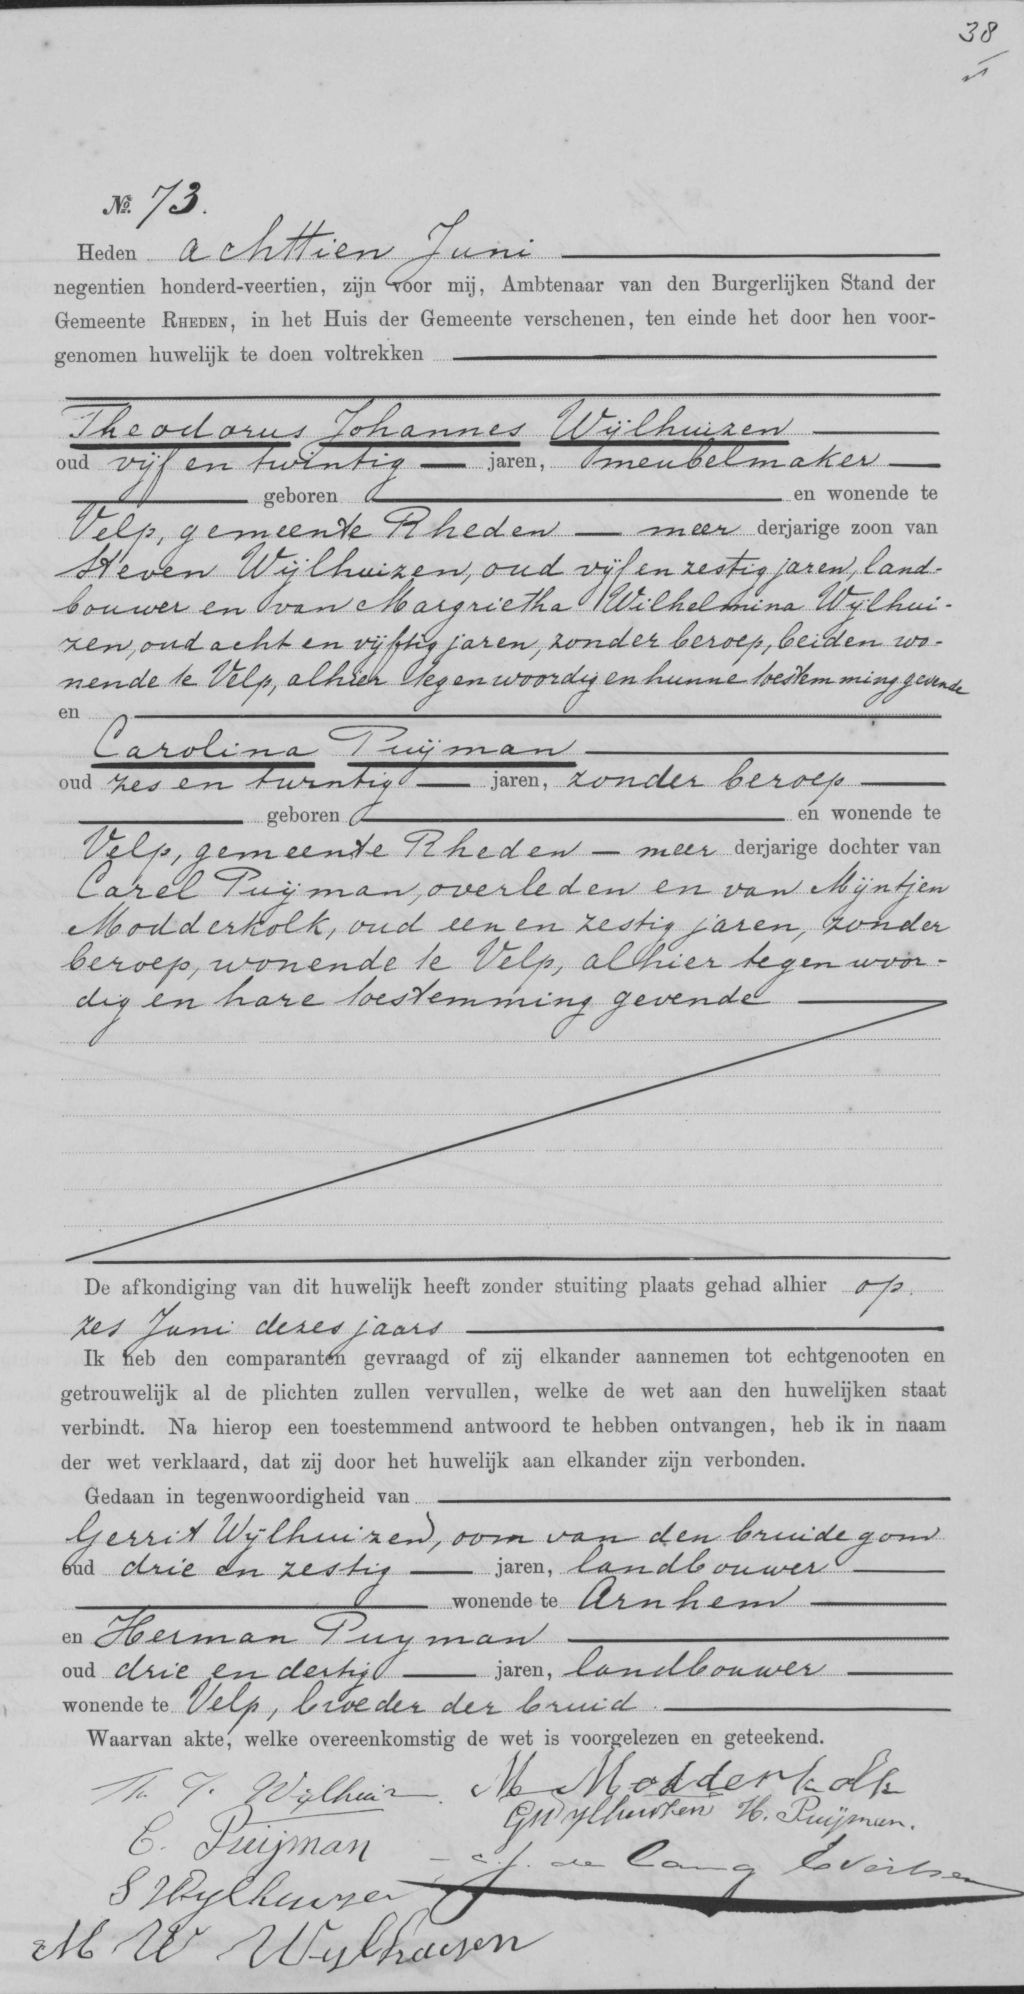 38
No. 73.
Heden achttien Juni
negentien honderd-veertien, zijn voor mij, Ambtenaar van den Burgerlijken Stand der
Gemeente RHEDEN, in het Huis der Gemeente verschenen, ten einde het door hen voor-
genomen huwelijk te doen voltrekken
Theodorus Johannes Wijlhuizen
oud vijf en twintig jaren, meubelmaker
geboren en wonende te
Velp, gemeente Rheden — meer derjarige zoon van
Steven Wijlhuizen, oud vijf en zestig jaren, land-
bouwer en van Margrietha Wilhelmina Wijlhui-
zen, oud acht en vijftig jaren, zonder beroep, beiden wo-
nende te Velp, alhier tegenwoordig en hunne toestemming gevende
en
Carolina Puijman
oud zes en twintig jaren, zonder beroep
geboren en wonende te
Velp, gemeente Rheden — meer derjarige dochter van
Carel Puijman, overleden en van Mijntjen
Modderkolk, oud een en zestig jaren, zonder
beroep, wonende te Velp, alhier tegenwoor-
dig en hare toestemming gevende
De afkondiging van dit huwelijk heeft zonder stuiting plaats gehad alhier op
zes Juni dezes jaars
Ik heb den comparanten gevraagd of zij elkander aannemen tot echtgenooten en
getrouwelijk al de plichten zullen vervullen, welke de wet aan den huwelijken staat
verbindt. Na hierop een toestemmend antwoord te hebben ontvangen, heb ik in naam
der wet verklaard, dat zij door het huwelijk aan elkander zijn verbonden.
Gedaan in tegenwoordigheid van
Gerrit Wijlhuizen, oom van den bruidegom
oud drie en zestig jaren, landbouwer
wonende te Arnhem
en Herman Puyman
oud drie en dertig jaren, landbouwer
wonende te Velp, broeder der bruid.
Waarvan akte, welke overeenkomstig de wet is voorgelezen en geteekend.
Th. J. Wijlhuizen M Modderkolk
GWylhuizen H. Puijman.
C. Puijman
c.j. de Lang Evertsen
S Wylhuizen
M W Wylhuizen